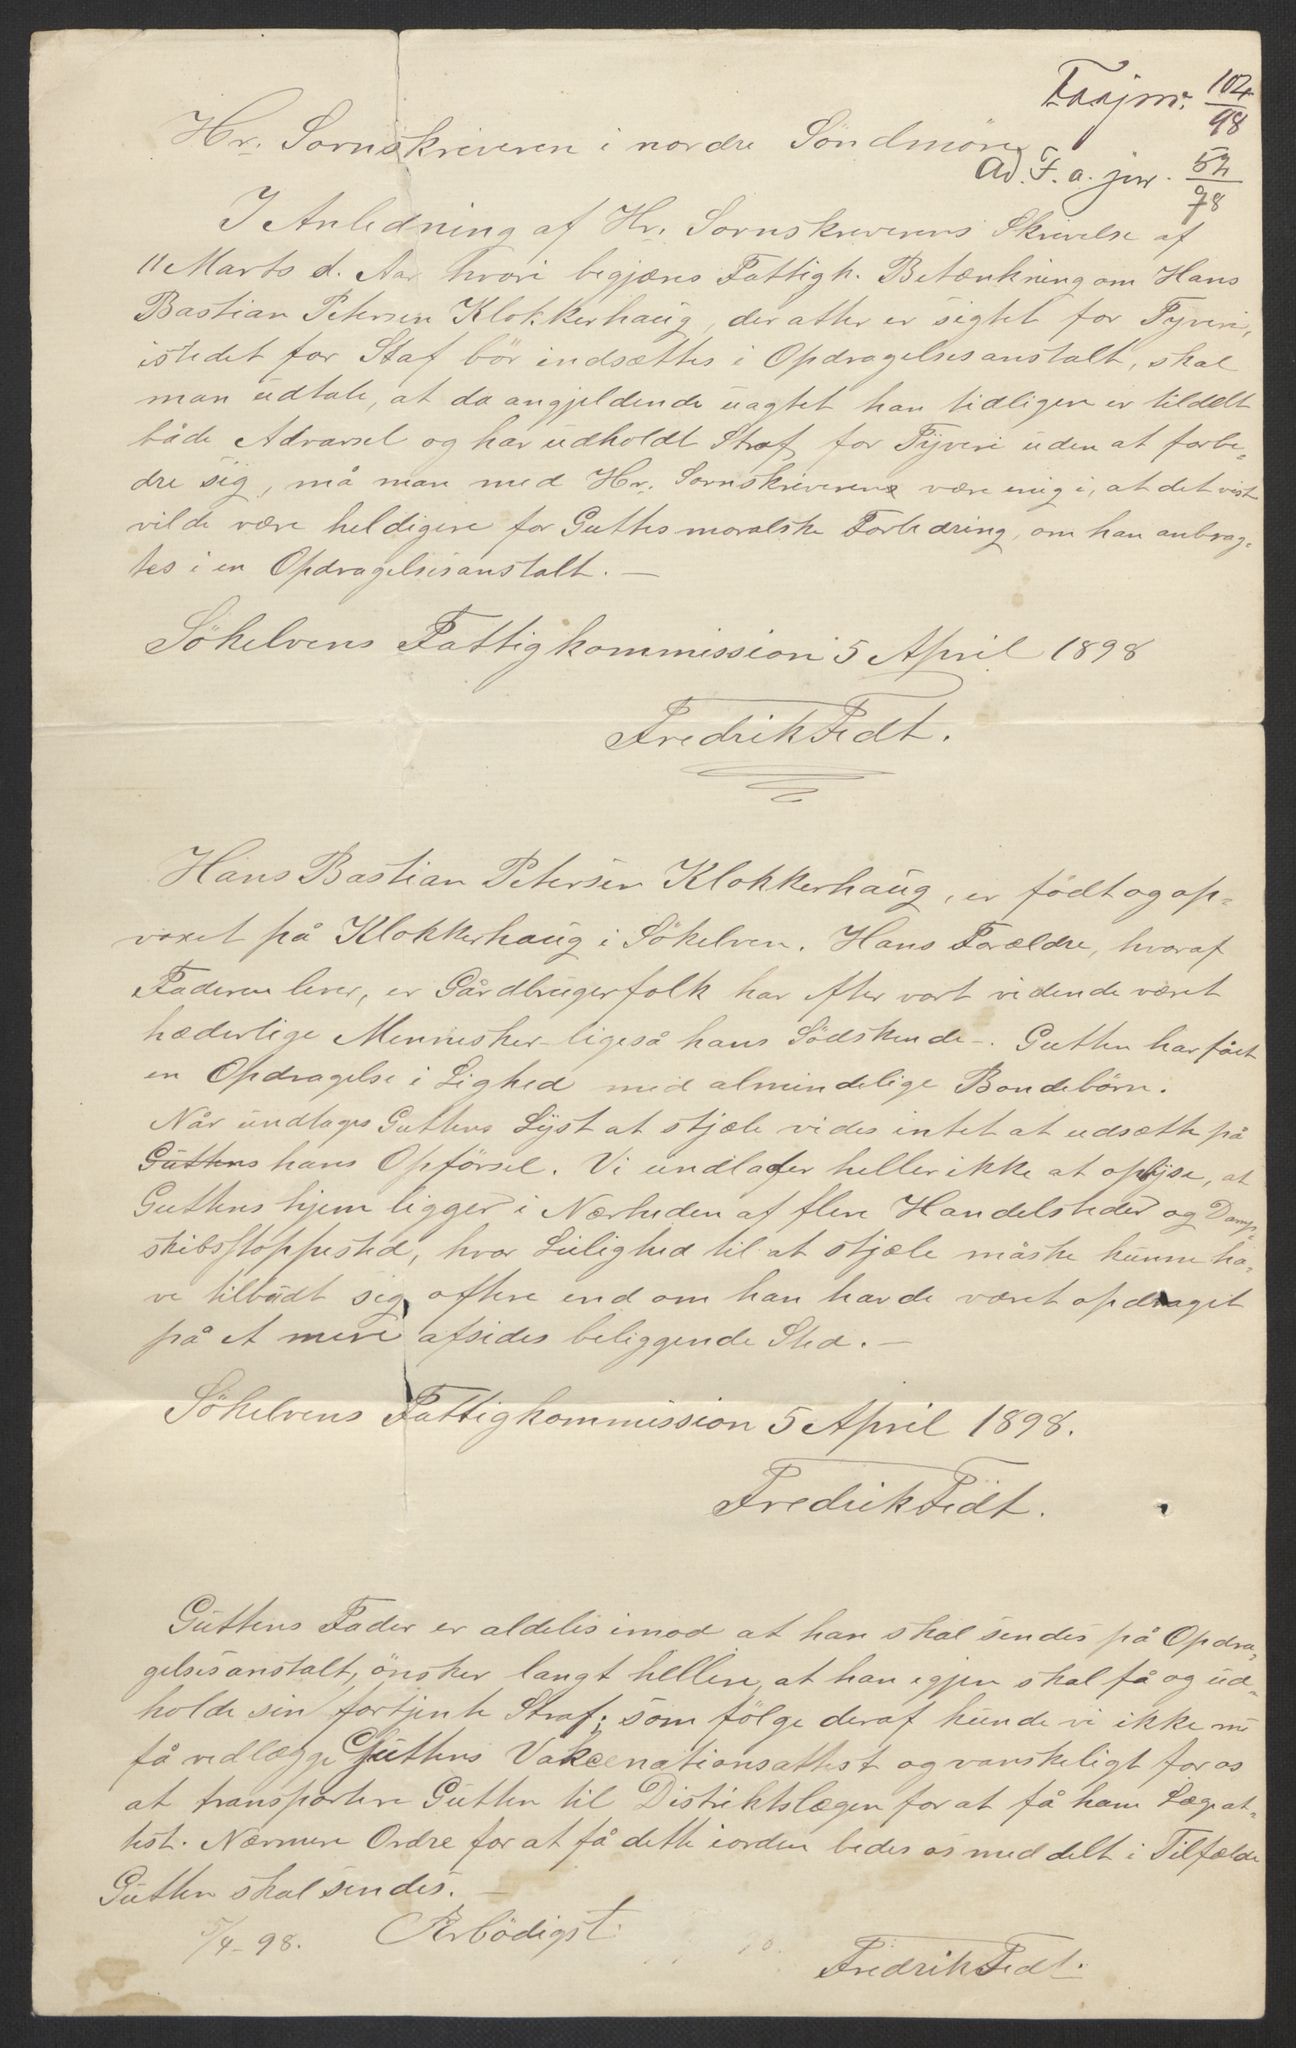 Fasjnr. 102/98
Hr. Sornskriveren i nordre Söndmöre
Ad. F. a. jnr. 52/98
I Anledning af Hr. Sornskriverens Skrivelse af
11 Marts d. Aar hvori begjæres Fattigk. Betænkning om Hans
Bastian Petersen Klokkerhaug, der atter er sigtet for Tyveri,
istedet for Staf bör indsættes i Opdragelsesanstalt, skal
man udtale, at da angjeldende uagtet han tidligere er tildelt
både Advarsel og har udholdt Straf for Tyveri uden at forbe-
dre sig, må man med Hr. Sornskriveren være enig i, at det vist
vilde være heldigere for Guttes moralske Forbedring, om han anbrag-
tes i en Opdragelsesanstalt. —
Sökelvens Fattigkommission 5 April 1898
Fredrik Fedt.
Hans Bastian Petersen Klokkerhaug, er födt og op-
voxet på Klokkerhaug i Sökelven. Hans Forældre, hvoraf
Faderen lever, er Gårdbrugerfolk har efter vort vidende været
hæderlige Mennesker ligeså hans Södskende -. Gutten har fået
en Opdragelse i Lighed med almindelige Bondebörn.
Når undtages Guttens Lyst at stjæle vides intet at udsætte på
Guttens hans Opförsel. Vi undlader heller ikke at oplyse, at
Guttens hjem ligger i Nærheden af flere Handelsteder og Damp-
skibsstoppested, hvor Leilighed til at stjæle måske kunne ha-
ve tilbudt sig oftere end om han havde været opdraget
på et mere afsides beliggende Sted. —
Sökelvens Fattigkommission 5 April 1898.
Fredrik Fedt.
Guttens Fader er aldeles imod at han skal sendes på Opdra-
gelsesanstalt, önsker langt hellere, at han igjen skal få og ud-
holde sin fortjente Straf; som fölge deraf kunde vi ikke nu
få vedlægge Guttens Vakcenationsattest og vanskeligt for os
at transportere Gutten til Distriktslægen for at få ham Lægeat-
test. Nærmere Ordre for at få dette iorden bedes os meddelt i Tilfælde
Gutten skal sendes. —
5/4-98. Ærbödigst
Fredrik Fedt.